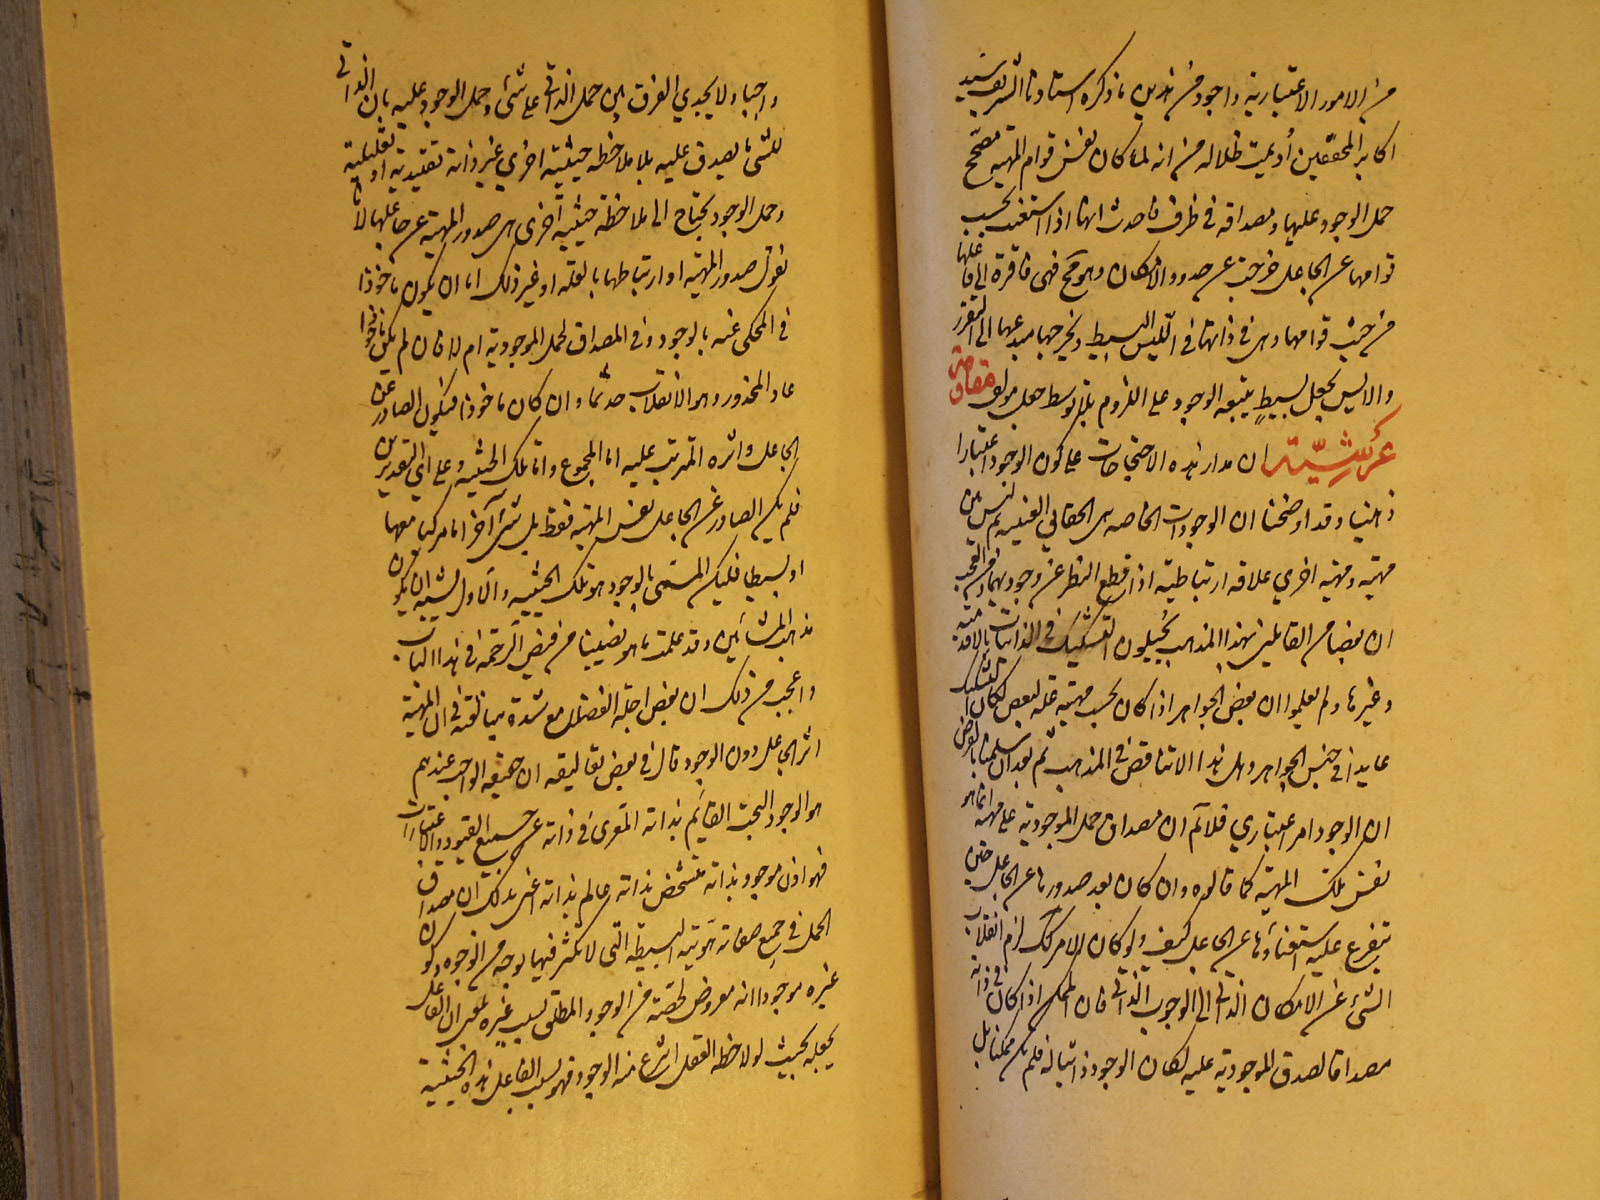 من الامور الاعتبارية واجود من هذين ما ذكره استادنا الشريف سيد
اكابر المحققين أديمت ظلاله من انه لما كان نفس قوام المهية مصحح
حمل الوجود عليها ومصداقه في ظرف ما حدث انها اذا استغنت بحسب
قوامها عن الجاعل خرجت عن حدود الامكان وهو مح فهى فاقرة الى فاعلها
من حيث قوامها وهى في ذاتها في الليس البسيط ويخرجها مبدعها الى التقرر
والايس بجعل بسيط يتبعه الوجود على اللزوم بلا توسط جعل مولف مقاومة
عرشية ان مدار هذه الاحتجاجات على كون الوجود اعتبارا
ذهنيا وقد اوضحنا ان الوجودات الخاصه هى الحقايق العينية ثم ليس بين
مهية ومهية اخرى علاقه ارتباطية اذا قطع النظر عن وجوديهما ومن العجب
ان بعضا من القايلين بهذا المذهب يحيلون التشكيك في الذاتيات بالاقدمية
وغيرها ولم يعلموا ان بعض الجواهر اذا كان بحسب مهية علة لبعض لكان التشكيك
عايدا في جنس الجواهر وهل هذا الا تناقض في المذهب ثم بعد ان سلمنا بالفرض
ان الوجود امر اعتباري فلا نم ان مصداق حمل الموجودية على مهية انما هو
نفس تلك المهية كما قالوه وان كان بعد صدورها عن الجاعل حتى
يتفرع عليه استغناؤها عن الجاعل كيف ولو كان الامر كك لزم انقلاب
الشئ عن الامكان الذاتى الى الوجوب الذاتى فان الممكن اذا كان في ذاته
مصداقا لصدق الموجودية عليه لكان الوجود ذاتيا له فلم يكن ممكنا بل
واجبا ولا يجدي الفرق بين حمل الذاتى على شئ وحمل الوجود عليه بان الذاتى
للشئ ما يصدق عليه بلا ملاحظه حيثية اخرى غير ذاته تقييدية او تعليلية
وحمل الوجود يحتاج الى ملاحظة حيثية آخرى هى صدور المهية عن جاعلها لانا
نقول صدور المهية او ارتباطها بالعلة او غير ذلك اما ان يكون ماخوذا
في المحكى عنه بالوجود وفي المصداق لحمل الموجودية ام لا فان لم يكن ماخوذا
عاد المحذور وهو الانقلاب حتما وان كان ماخوذا فيكون الصادر عن
الجاعل واثره المترتب عليه اما المجموع واما تلك الحيثية وعلى اي التقديرين
فلم يك الصادر عن الجاعل نفس المهية فقط بل شئ آخر اما مركبا معها
او بسيطا فليكن المسمى بالوجود هو تلك الحيثية والاول يشبه ان يكون
مذهب المشائين وقد علمت ما هو نصيبنا من فيض الرحمة في هذا الباب
واعجب من ذلك ان بعض اجلة الفضلاء مع شدة مبالغته في ان المهية
اثر الجاعل دون الوجود قال في بعض تعاليقه ان حقيقة الواجب عندهم
هو الوجود البحت القايم بذاته المعرى في ذاته عن جميع القيود والاعتبارات
فهو اذن موجود بذاته متشخص بذاته عالم بذاته اعنى بذلك ان مصداق
الحمل في جميع صفاته هويته البسيطة التى لا تكثر فيها بوجه من الوجوه وكون
غيره موجودا انه معروض لحصة من الوجود المطلق بسبب غيره بمعنى ان الفاعل
يجعله بحيث لو لاحظه العقل انتزع منه الوجود فهو بسبب الفاعل بهذه الحيثية